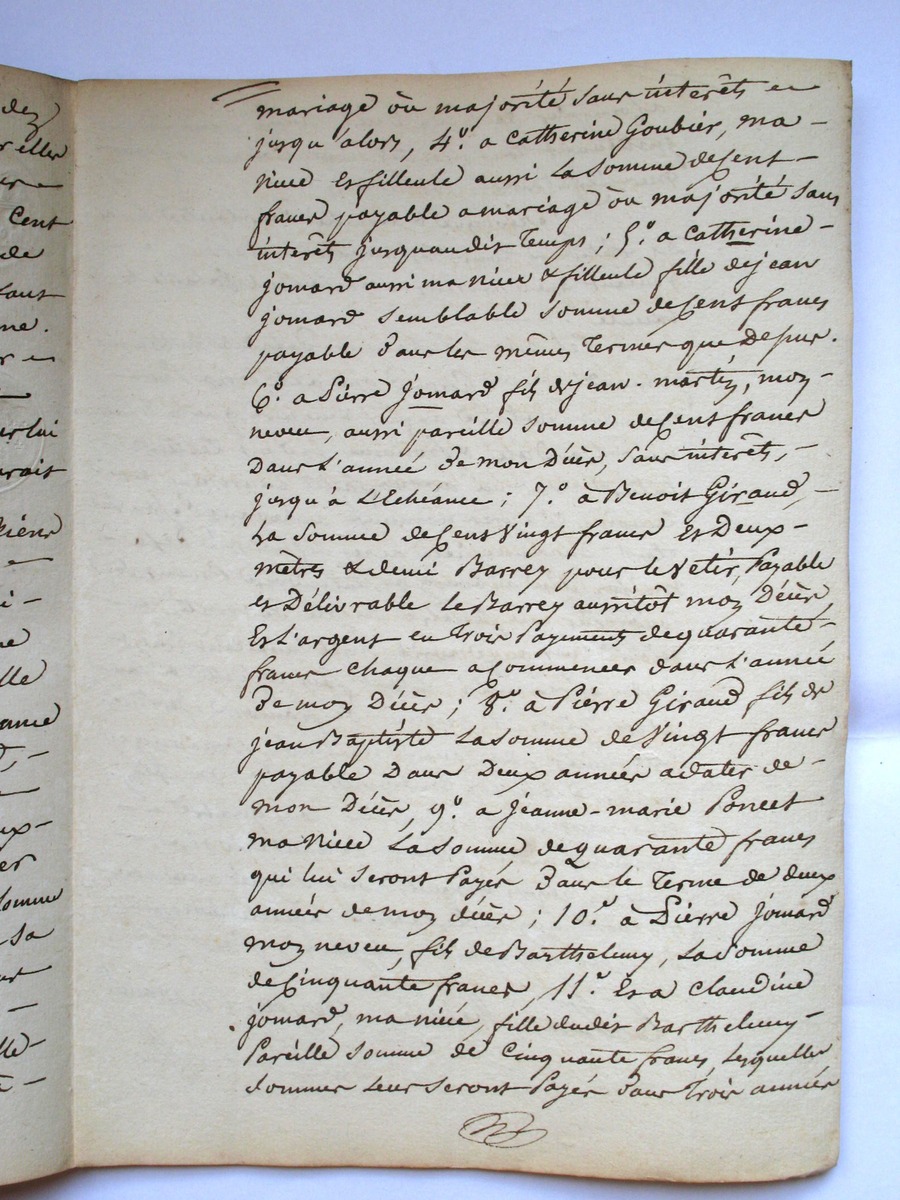 dez
r elles
Cent
de
tant
ne.
lui
rait
ième
i -
ne
lle
ux-
er
somme
sa
lle-
mariage ou majorité sans intérêts en
jusqu'alors, 4.º a Catherine Goubier, ma -
niece et filleule aussi La Somme de Cent -
francs payable a mariage ou majorité sans
intérêts jusquaudit Temps ; 5.º a Catherine -
jomard aussi ma niece & filleule fille de jean
jomard semblable somme de Cent francs
payable Dans les mêmes Termes que Depuis.
6.º a Pierre Jomard fils de jean-martin, mon -
neveu, aussi pareille somme de Cent francs
Dans L'année de mon Décès, sans intérêts, -
jusqu'à L'Echéance ; 7.º à Benoit Giraud, -
La somme de Cent Vingt francs et Deux -
mètres & demi Barrey pour le Vetir, Payable
et Délivrable Le Barrey aussitôt mon Décès,
Et L'argent en Trois Payements de quarante -
francs Chaque a Commencer dans L'année
De mon Décès ; 8.º à Piérre Giraud fils de
jean Baptiste La somme de Vingt francs
payable Dans Deux années a dater de -
mon Décès, 9.º a jeanne-marie Poncet
ma Niece La somme de quarante francs
qui lui seront Payés Dans le Terme de deux
années de mon décès ; 10.º à Piérre Jomard
mon neveu, fils de Barthelemy, La Somme
de Cinquante francs, 11.º Et a Claudine
jomard, ma niéce, fille dudit Barthelemy -
Pareille somme de Cinquante francs Lesquelles
sommes Leur seront Payés Dans Trois années